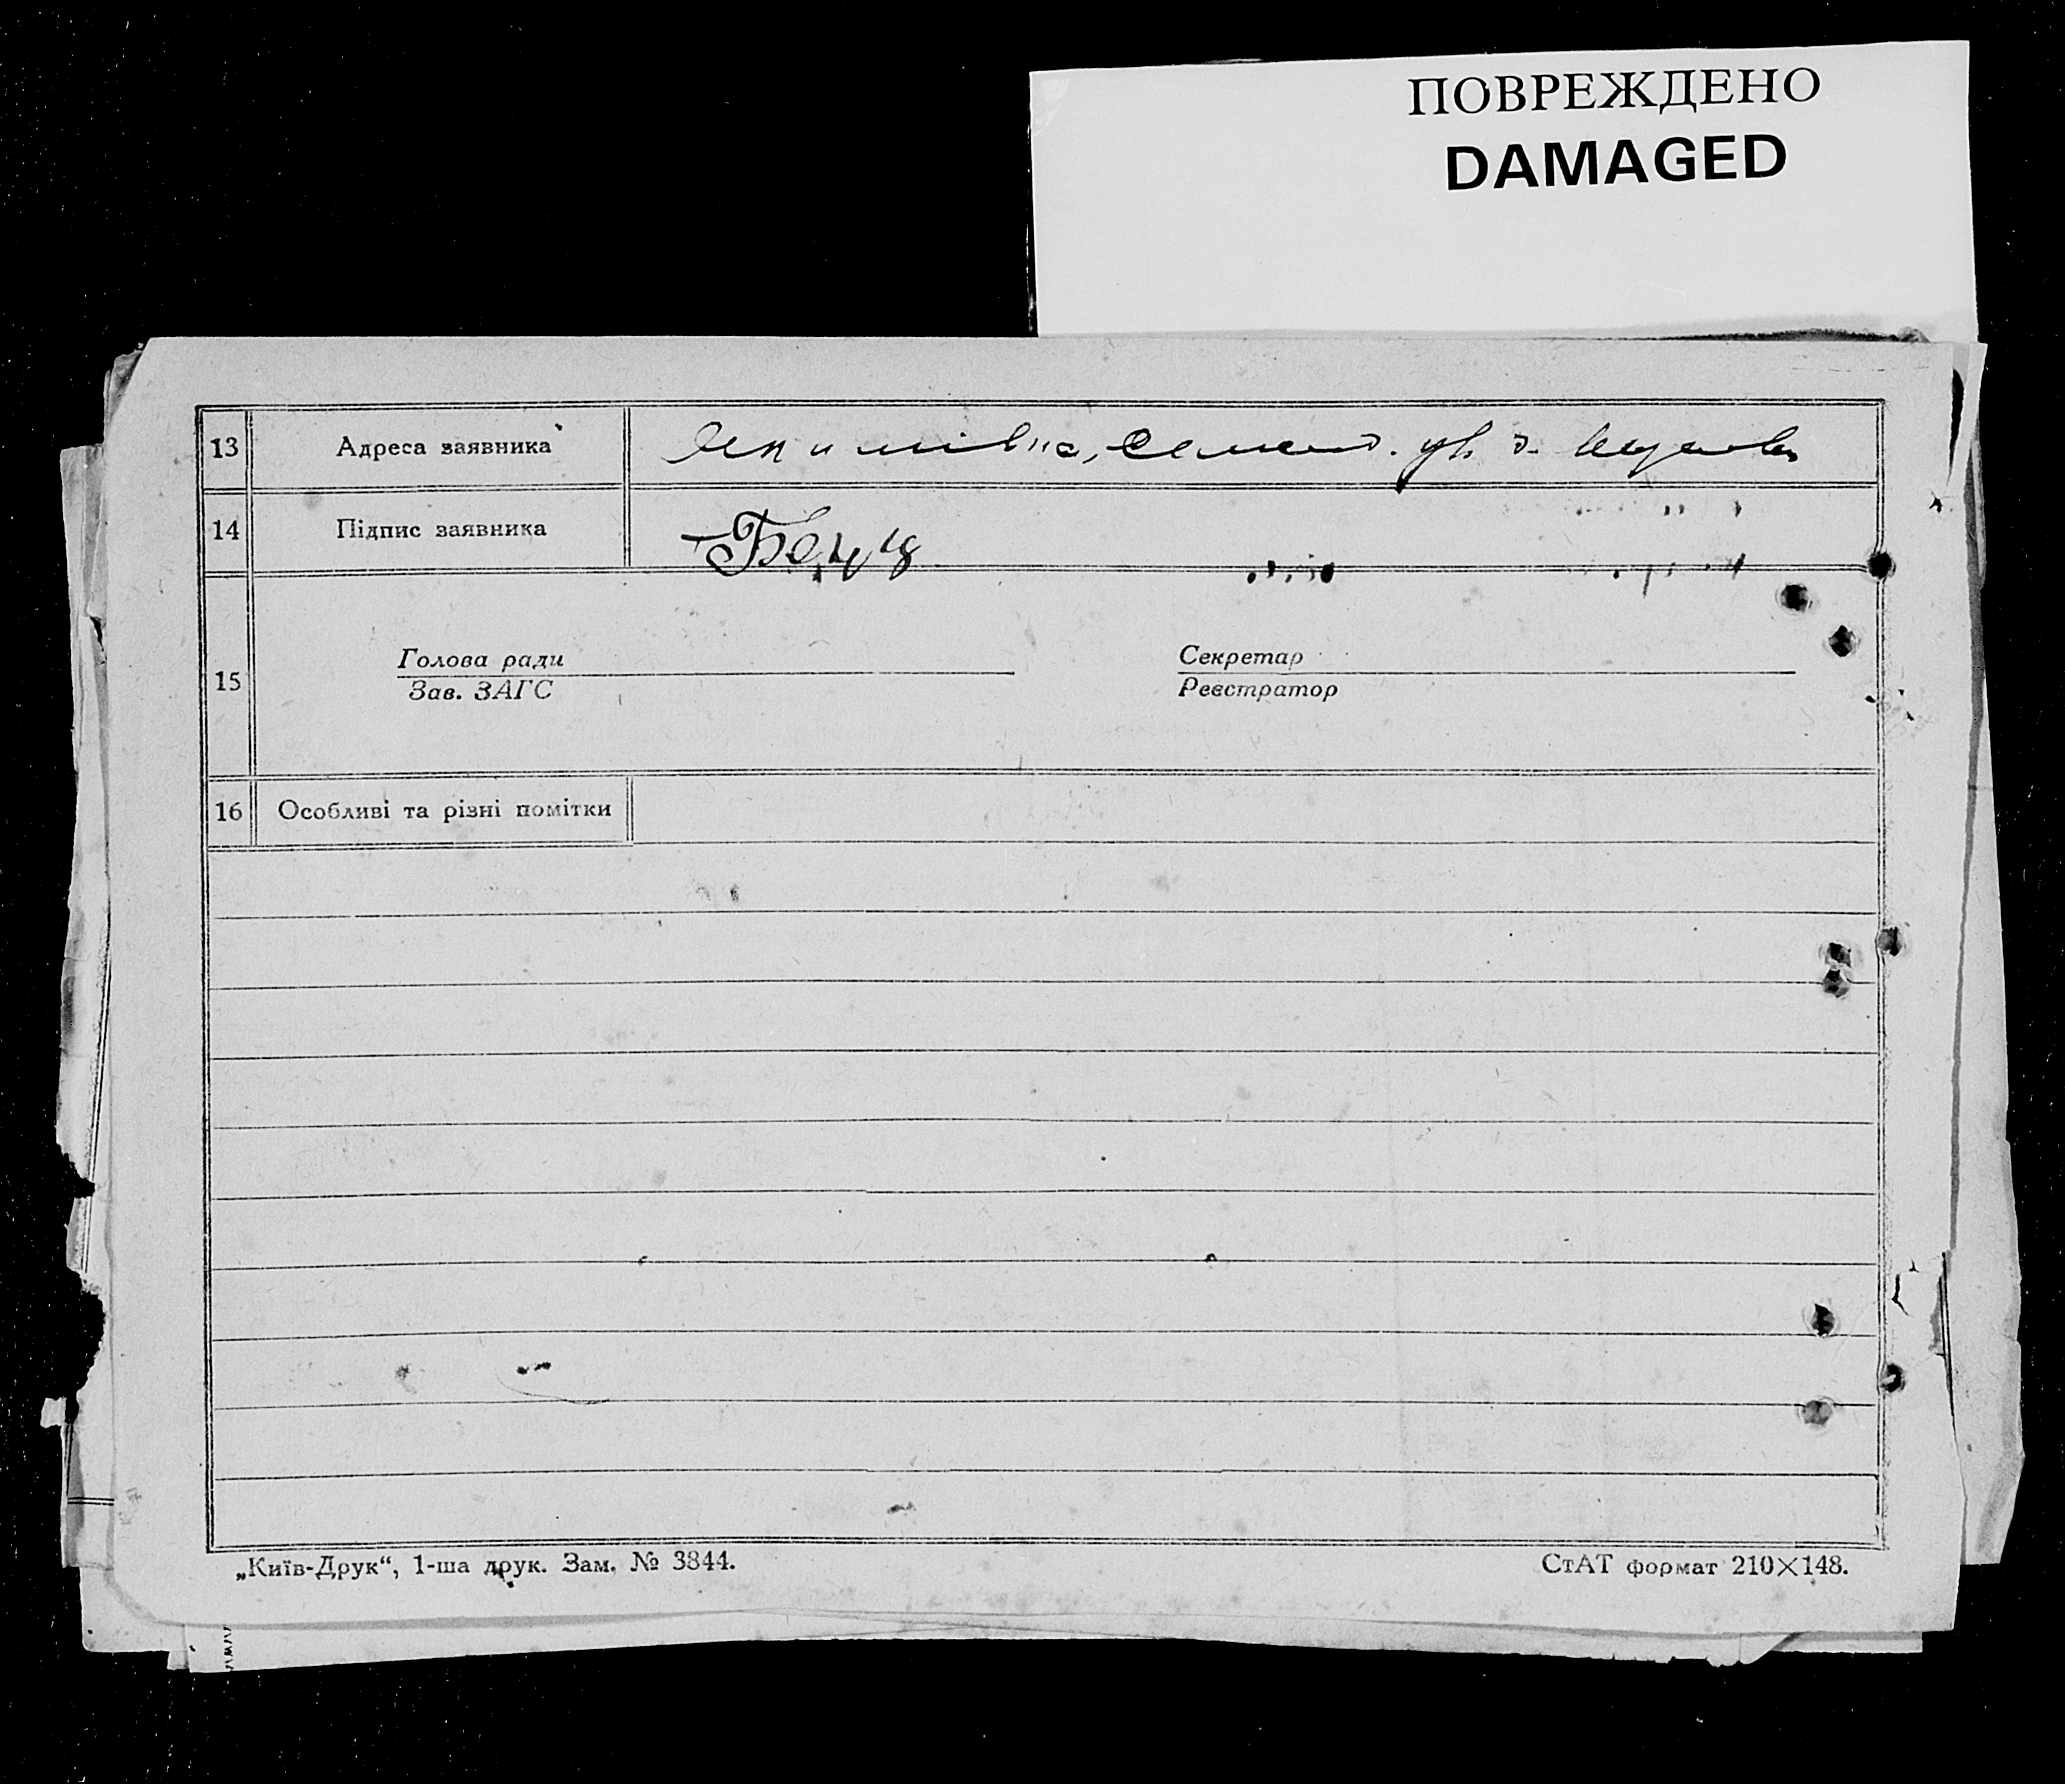 ПОВРЕЖДЕНО
DAMAGED
13 Адреса заявника Якимівка,
14 Підпис заявника
15 Голова ради Секретар
Зав. ЗАГС Реєстратор
16 Особливі та різні помітки
„Київ-Друк“, 1-ша друк. Зам. № 3844. СтАТ формат 210×148.